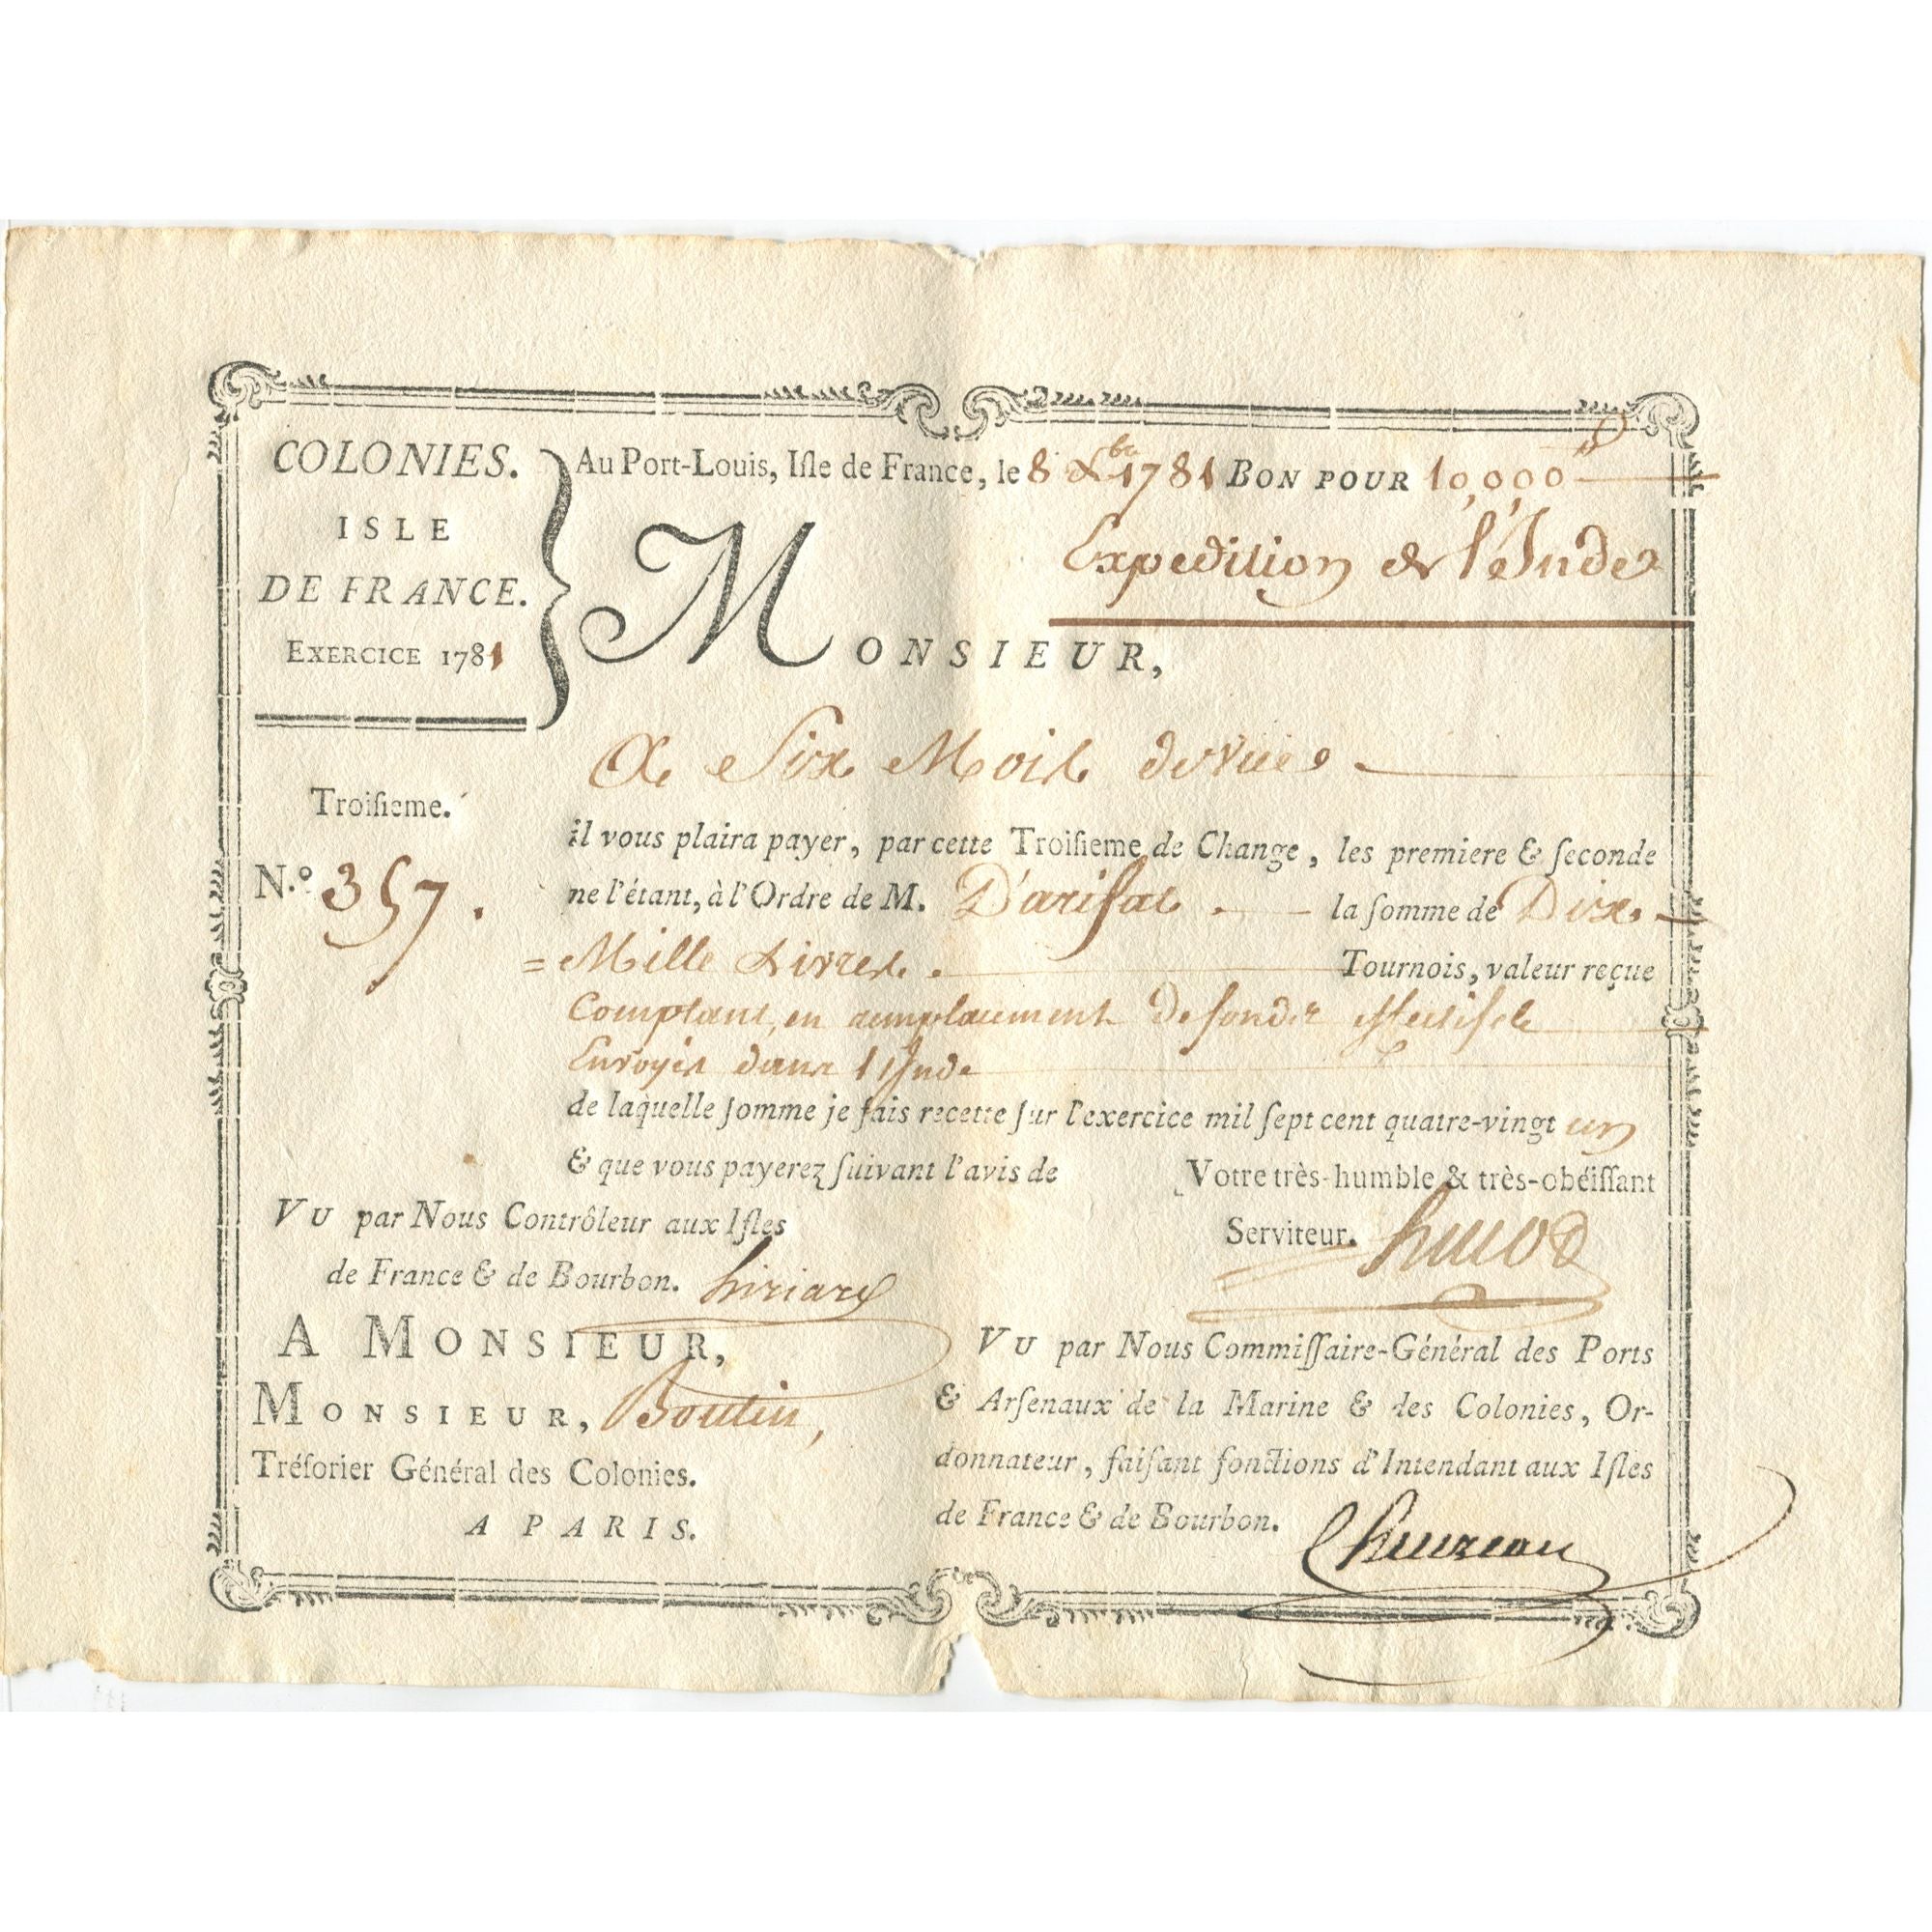 COLONIES.
ISLE
DE FRANCE.
EXERCICE 1781
Au Port-Louis, Iſle de France, le 8 Xbre 1781 BON POUR 10,000
Expedition de l'Inde
MONSIEUR,
A Six Mois de vüe
Troiſieme.
N.º 357.
il vous plaira payer, par cette Troiſieme de Change, les premiere & ſeconde
ne l'étant, à l'Ordre de M. D'arifat. la ſomme de Dix
= Mille Livres. Tournois, valeur reçue
Comptant, en remplacement de fonds effectifs
Envoyés dans l'Inde
de laquelle ſomme je fais recette ſur l'exercice mil ſept cent quatre-vingt un
& que vous payerez ſuivant l'avis de
Votre très-humble & très-obéiſſant
Serviteur.
VU par Nous Contrôleur aux Iſles
de France & de Bourbon. hiriart
A MONSIEUR,
MONSIEUR, Boutin,
Tréſorier Général des Colonies.
A PARIS.
VU par Nous Commiſſaire-Général des Ports
& Arſenaux de la Marine & des Colonies, Or-
donnateur, faiſant fonctions d'Intendant aux Iſles
de France & de Bourbon. Chevreau